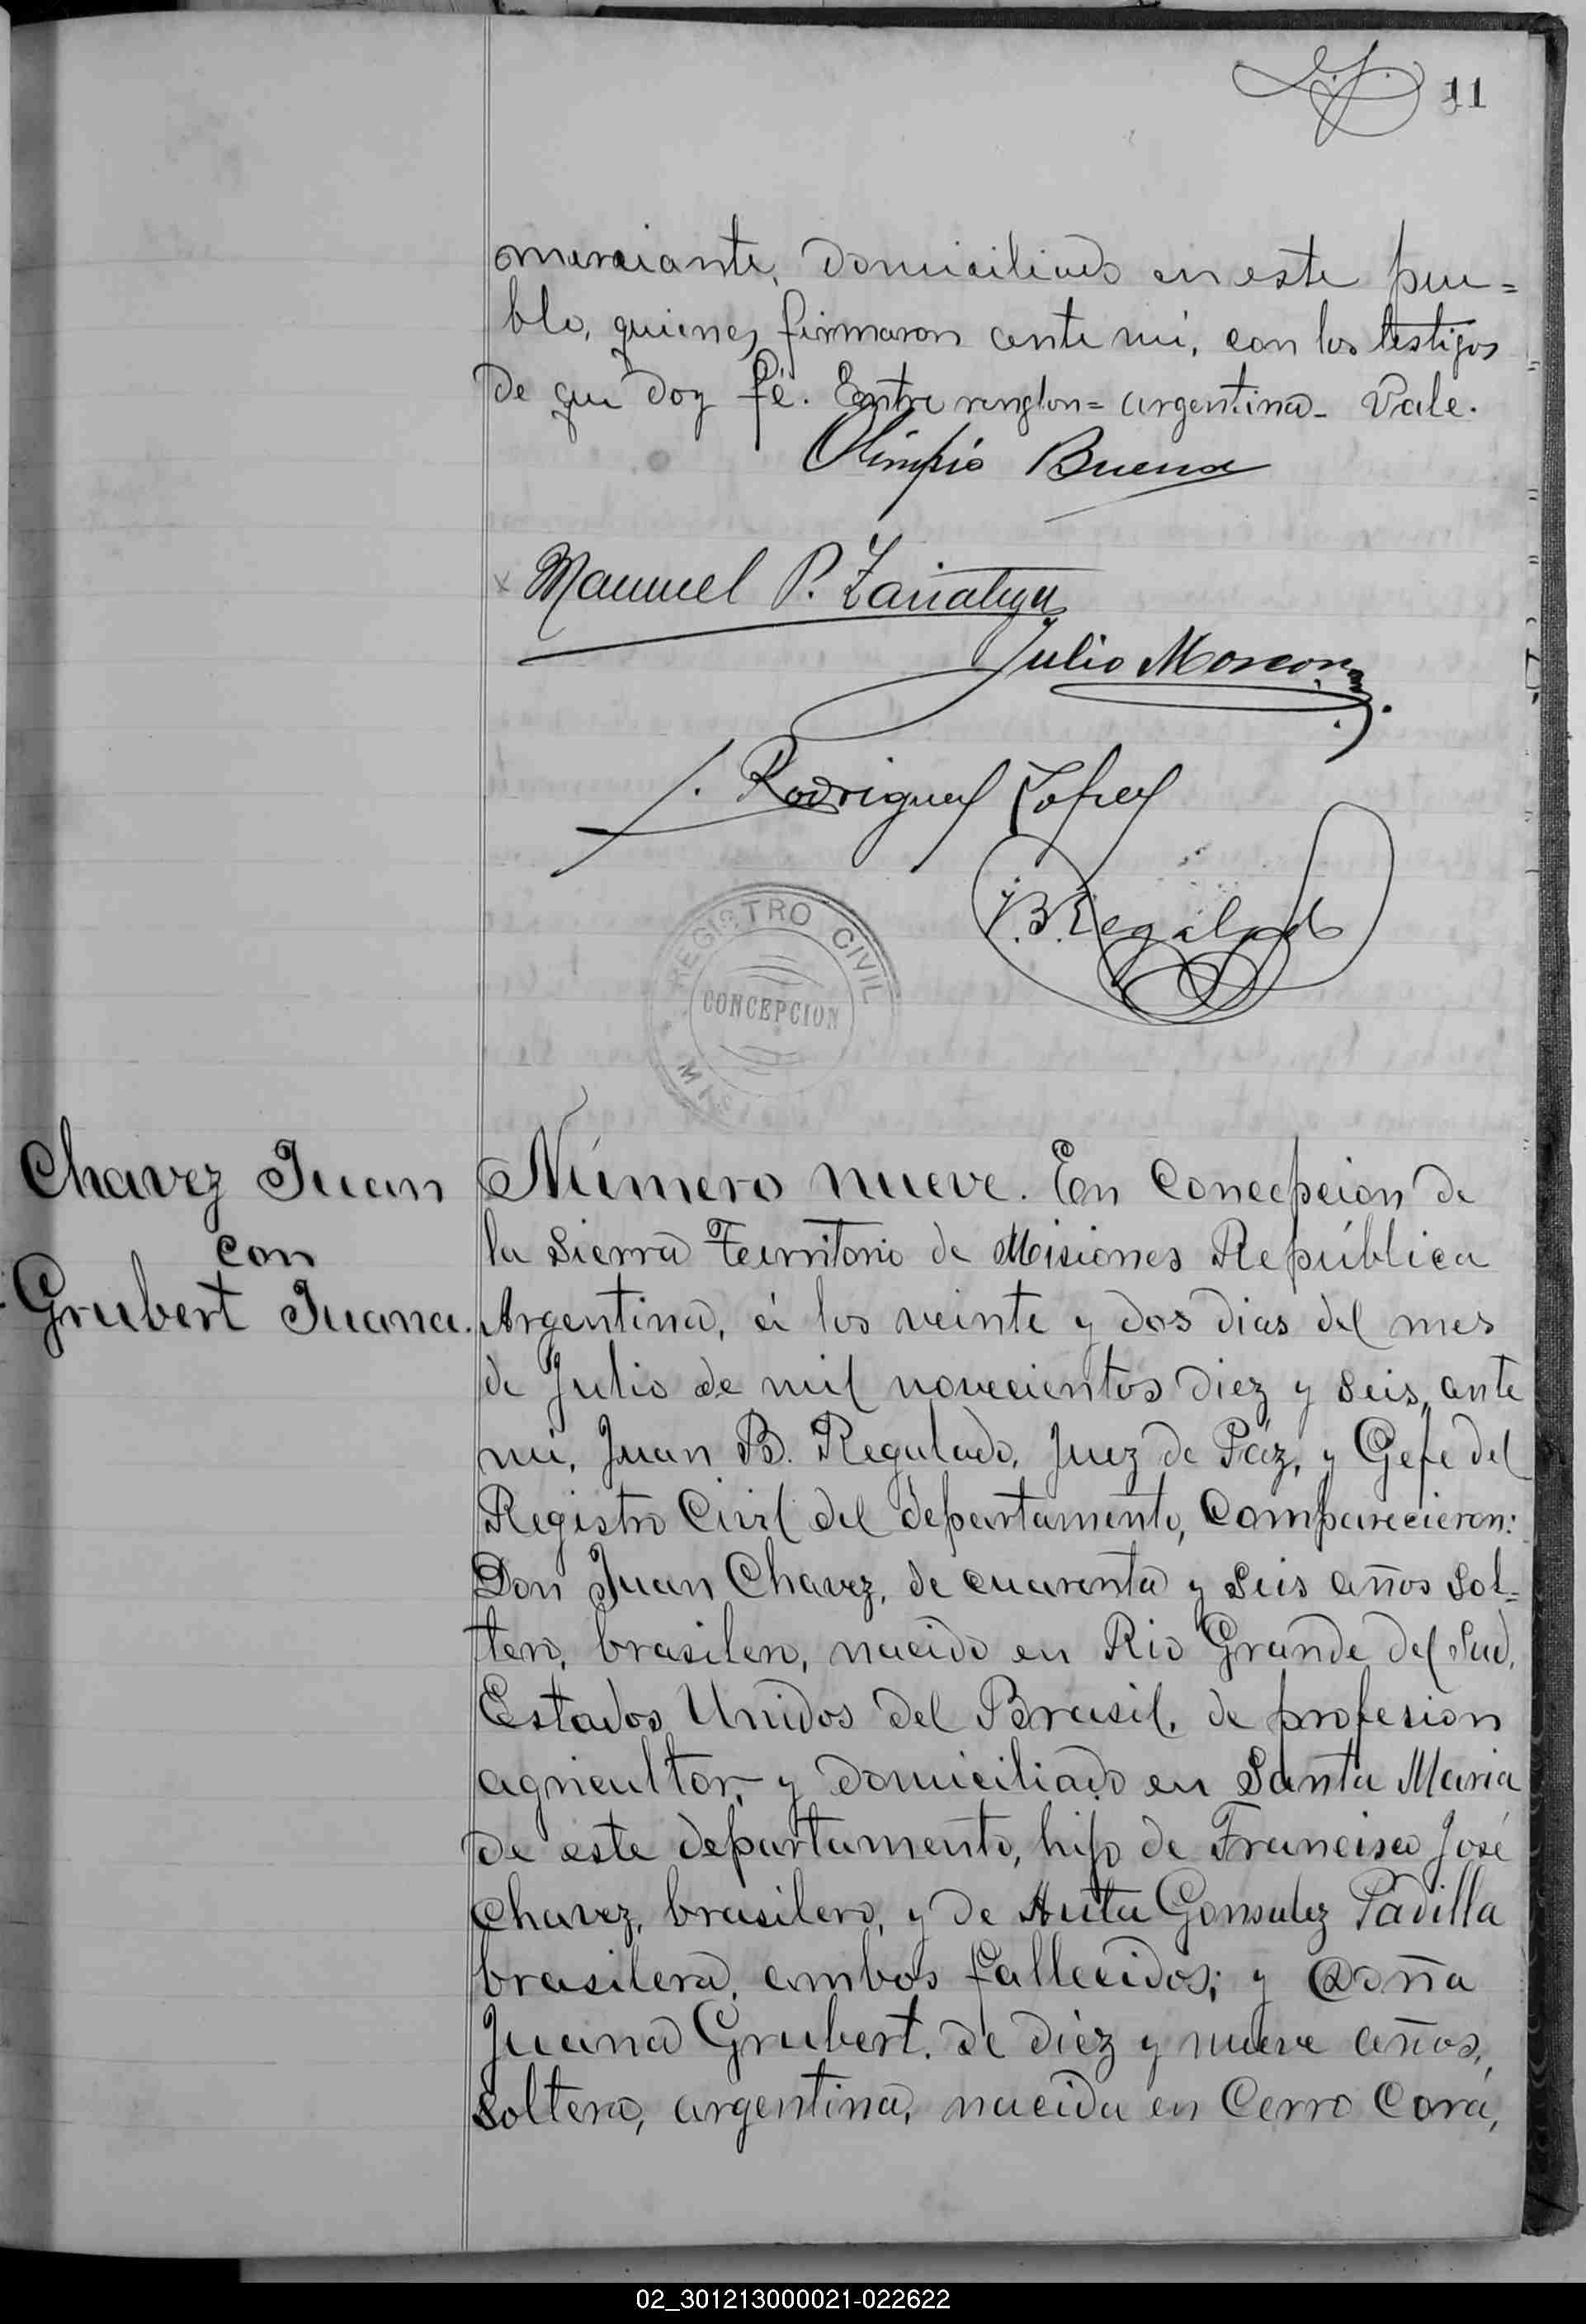 11
omerciante, domiciliado en este pue=
blo, quienes firmaron ante mi, con los testigos
de que doy fé. Entre renglon= argentina- Vale.
Olimpio Buena
x Manuel P.
Julio
J. Rodriguez
J. B. Regalado
REGISTRO CIVIL
CONCEPCION
Chavez Juan
con
Grubert Juana.
Número nueve. En Concepcion de
la Sierra Territorio de Misiones República
Argentina, á los veinte y dos dias del mes
de Julio de mil novecientos diez y seis, ante
mi, Juan B. Regalado, Juez de Páz, y Gefe del
Registro Civil del departamento, Comparecieron:
Don Juan Chavez, de cuarenta y seis años sol-
tero, brasilero, nacido en Rio Grande del Sud,
Estados Unidos del Brasil, de profesion
agricultor, y domiciliado en Santa Maria
de este departamento, hijo de Francisco José
Chavez, brasilero, y de Gonsalez Padilla
brasilera, ambos fallecidos; y Doña
Juana Grubert, de diez y nueve años,
soltera, argentina, nacida en Cerro Corá,
02_301213000021-022622